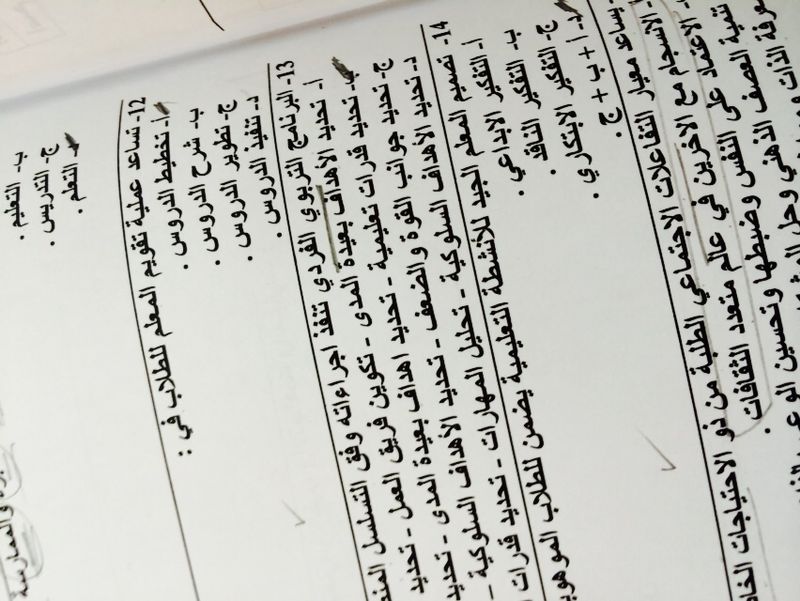 أ- التعلم .
ج- التدريس .
ب- التعليم .
12- تساعد عملية تقويم المعلم للطلاب في :
أ- تخطيط الدروس .
ب- شرح الدروس .
ج- تطوير الدروس .
د- تنفيذ الدروس .
13- البرنامج التربوي الفردي تنفذ اجراءاته وفق التسلسل
أ- تحديد الأهداف بعيدة المدى - تكوين فريق العمل - تحديد
ب- تحديد قدرات تعليمية - تحديد اهداف بعيدة المدى - تحديد
ج- تحديد جوانب القوة والضعف - تحديد الأهداف السلوكية -
د- تحديد الأهداف السلوكية - تحليل المهارات - تحديد قدرات
14- تصميم المعلم الجيد للأنشطة التعليمية يضمن للطلاب
أ- التفكير الابداعي .
ب- التفكير الناقد .
ج- التفكير الابتكاري .
د- أ + ب + ج .
يساعد معيار التفاعلات الاجتماعي الطلبة من ذو الاحتياجات
الانسجام مع الآخرين في عالم متعدد الثقافات .
الاعتماد على النفس وضبطها وتحسين
تنمية العصف الذهني وحل
الذات
والممارسة